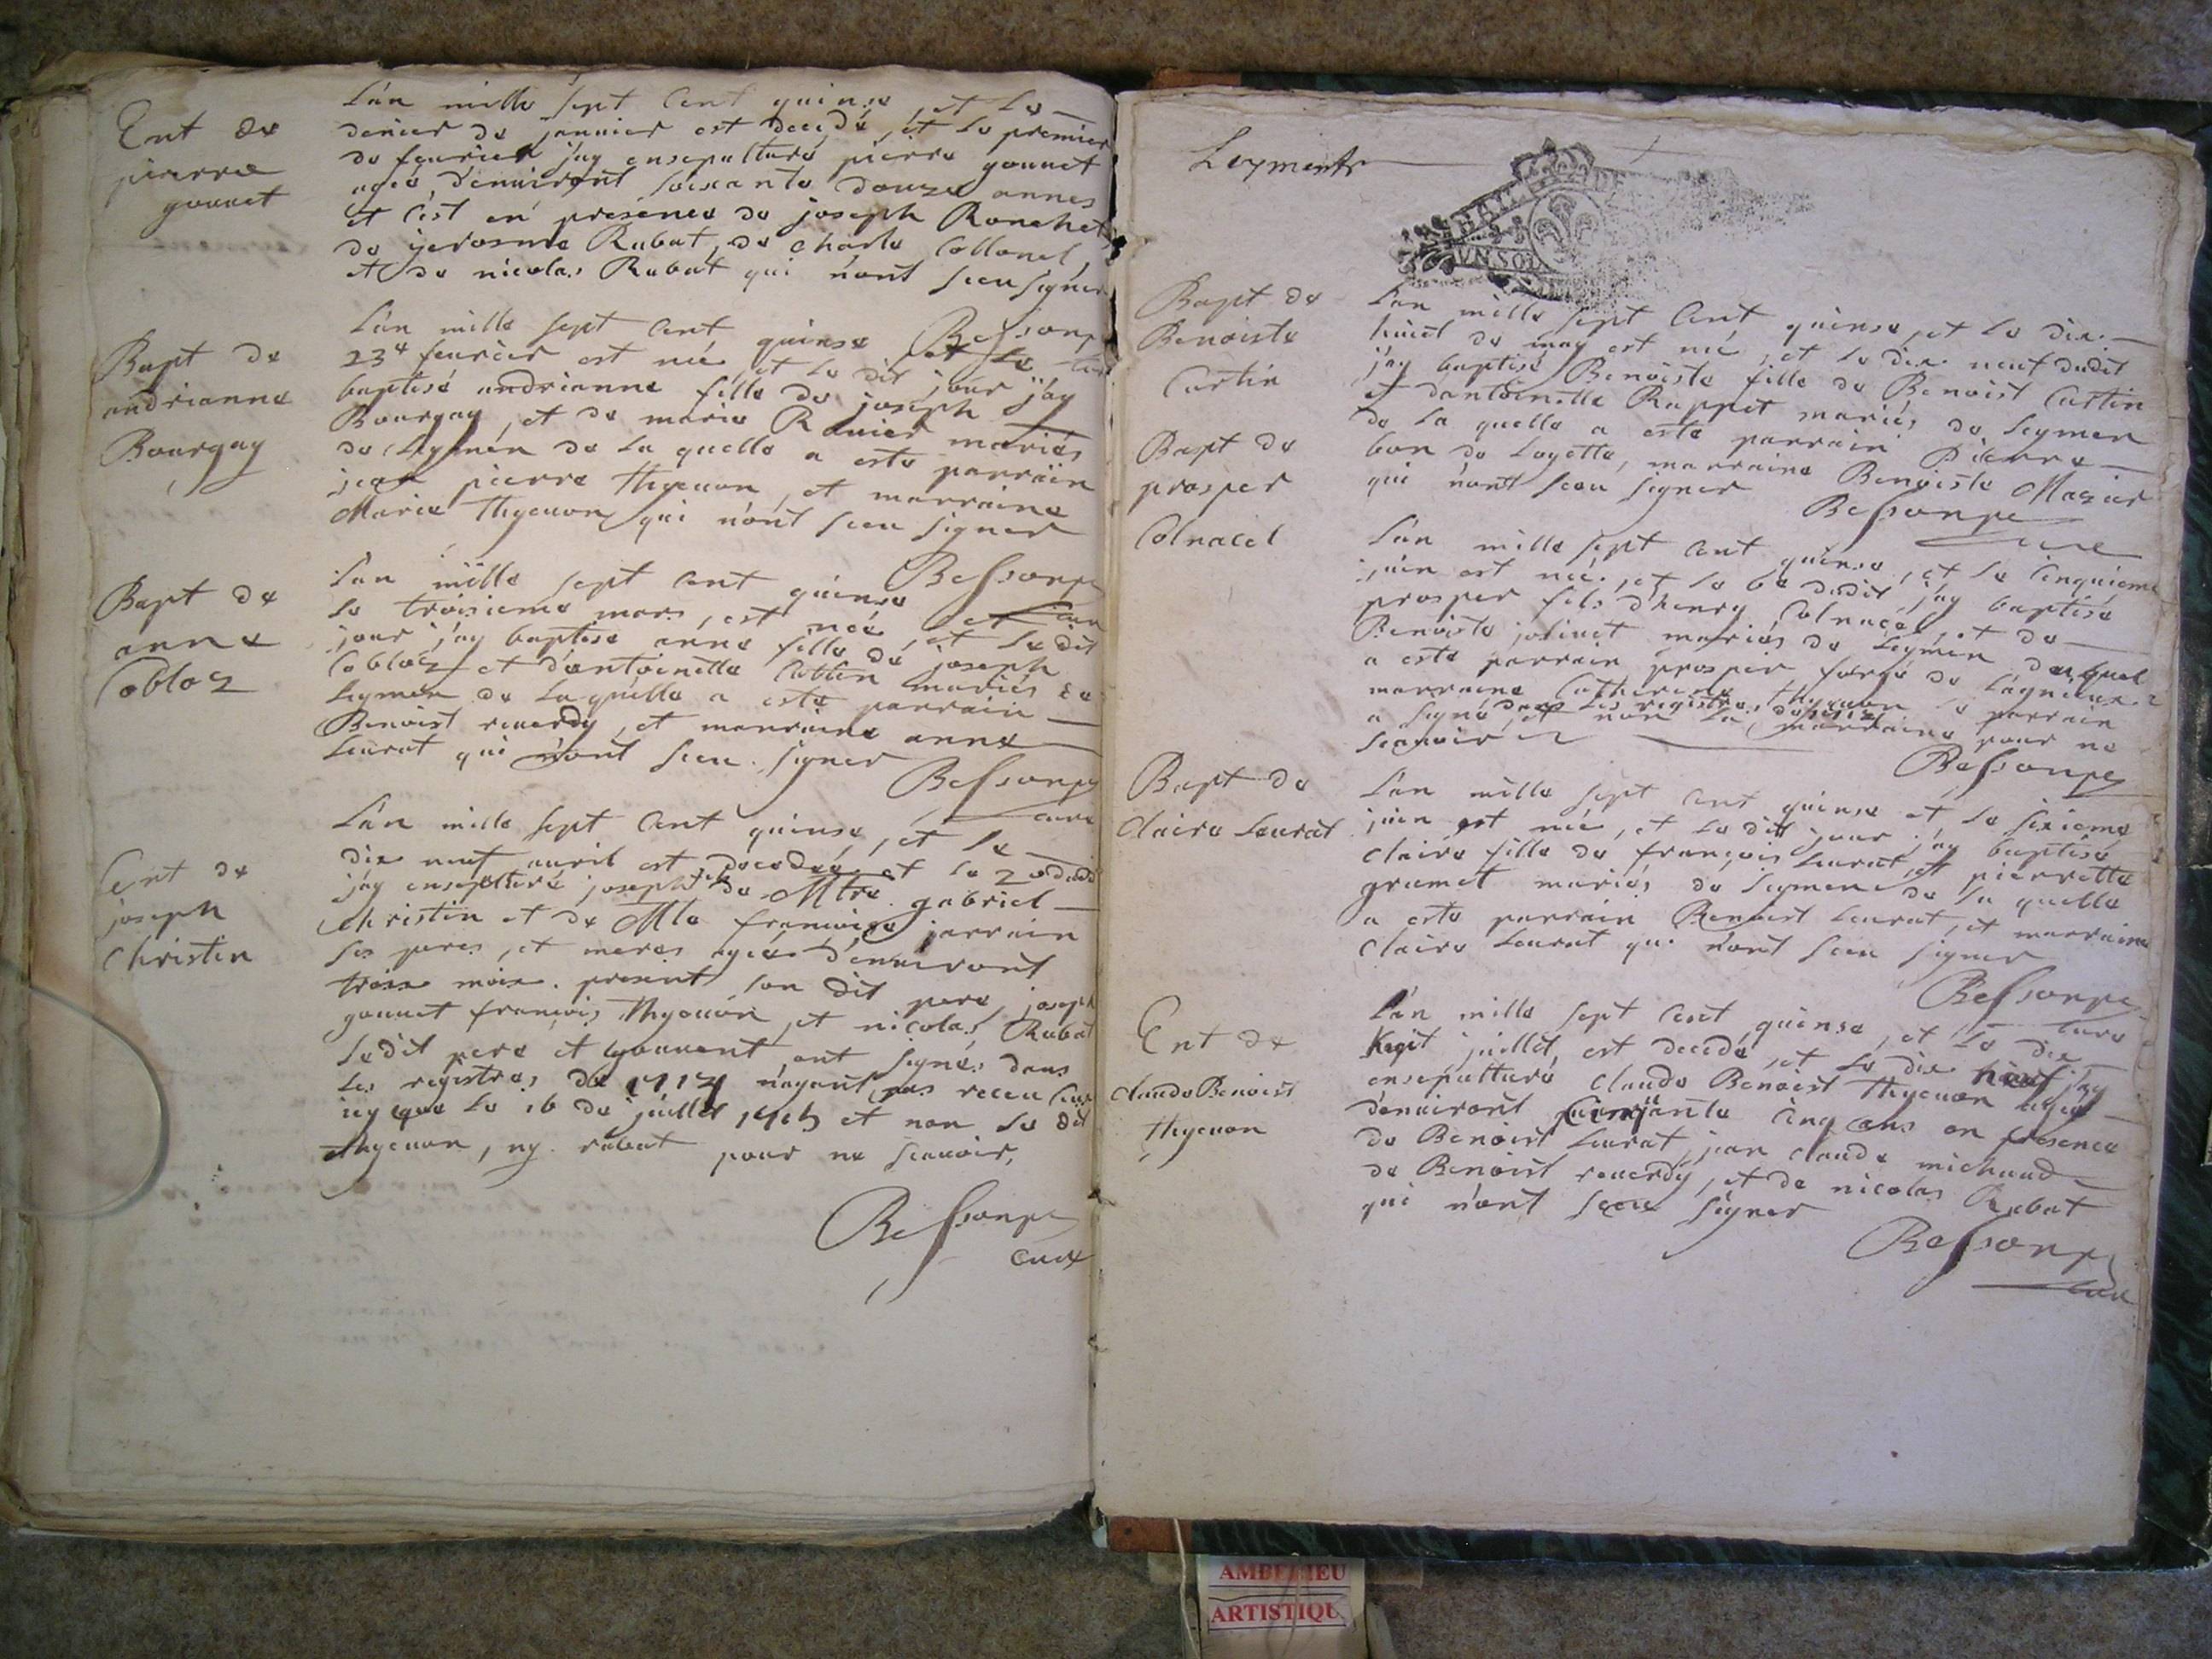 Ent de
pierre
gonnet
L'an mille sept Cent quinse, et Le
denier de januier est decedé, et Le premier
de feurier j'ay ensepulturé pierre gonnet
agée d'enuiront soixante douze annes
et c'est en presence de joseph Ronchet
de jerosme Rubat, de charle Collonel,
et de nicolas Rubat qui n'ont sceu signer
Bessonpe
Bapt de
andrianne
Bourgay
L'an mille sept Cent quinse et Le
23e feurier est née, et Le dit jour j'ay
baptisé andrianne fille de joseph
Bourgay, et de marie Rauier mariés
de Leymen de La quelle a este parrain
jean pierre thyeuon, et marraine
Marie thyeuon qui n'ont sceu signer
Bessonpe
Bapt de
anne
Cobloz
L'an mille sept Cent quinse et
Le troisieme mars, est née, et Le dit
jour j'ay baptise anne fille de joseph
Cobloz et d'antoinette mariés de
Leymen de La quelle a este parrain
Benoist reuerdy, et marraine anne
Leurat qui n'ont sceu signer
Bessonpe
cure
Ent de
joseph
Christin
L'an mille sept Cent quinse, et Le
dix neuf auril est decedée, et Le 20 dudit
j'ay ensepulturé joseph fils de Mtre gabriel
Christin et de Mle francoise jarrain
ses peres, et meres agée d'enuiront
troix moix. present son dit pere, joseph
gonnet francois Thyeuon, et nicolas Rubat
Ledit pere et gounent ont signés dans
Les registres de 1714 n'ayant pas receu Ceux
icy que Le 16 de juillet 1715 et non Le dit
thyeuon, ny rubat pour ne scauoir,
Bessonpe
cure
Leyment
UN SOL
Bapt de
Benoiste
Curtin
L'an mille sept Cent quinse, et Le dix
huict de may est née, et Le dix neuf dudit
j'ay baptisé Benoiste fille de Benoist Curtin
et d'antoinette Rappet mariés de Leymen
de La quelle a este parrain Pierre
bon de Loyette, marraine Benoiste Mazier
qui n'ont sceu signer
Bessonpe
cure
Bapt de
prosper
Colnacel
L'an mille sept Cent quinse, et Le Cinquieme
juin est née, et Le 6e dudit j'ay baptisé
prosper fils d'henry Colnacel, et de
Benoiste jolinet mariés de Leymen du quel
a este parrain prosper fargé de Lagnieux
marraine Catherine thyeuon Le parrain
a signé dans Les registres de 1714
et non La marraine pour ne
scauoir
Bessonpe
Bapt de
Claire Leurat
L'an mille sept Cent quinse et Le sixieme
juin est née, et Le dit jour j'ay baptisé
Claire fille de francois Leurat, et pierrette
grumet mariés de Leymen de La quelle
a este parrain Benoist Leurat, et marraine
Claire Leurat qui n'ont sceu signer
Bessonpe
cure
Ent de
claude Benoist
thyeuon
L'an mille sept Cent quinse, et Le dix
sept juillet, est decedé, et Le dix huict j'ay
ensepulturé claude Benoist thyeuon agée
d'enuiront Cinquante Cinq ans en presence
de Benoist Leurat, jean claude michaud
de Benoist reuerdy, et de nicolas Rubat
qui n'ont sceu signer
Bessonpe
cure
AMBERIEU
ARTISTIQU